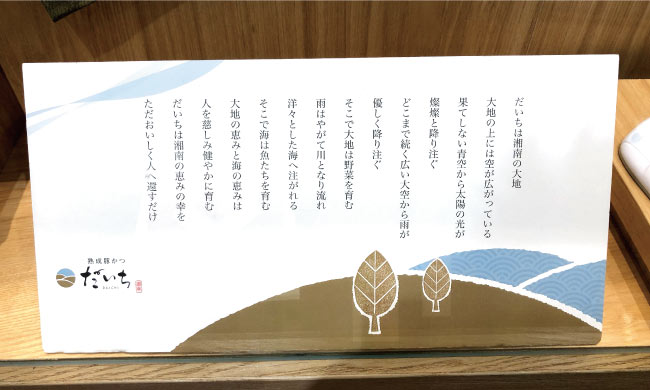 だいちは湘南の大地
大地の上には空が広がっている
果てしない青空から太陽の光が
燦燦と降り注ぐ
どこまで続く広い大空から雨が
優しく降り注ぐ
そこで大地は野菜を育む
雨はやがて川となり流れ
洋々とした海へ注がれる
そこで海は魚たちを育む
大地の恵みと海の恵みは
人を慈しみ健やかに育む
だいちは湘南の恵みの幸を
ただおいしく人へ還すだけ
熟成豚かつ
だいち